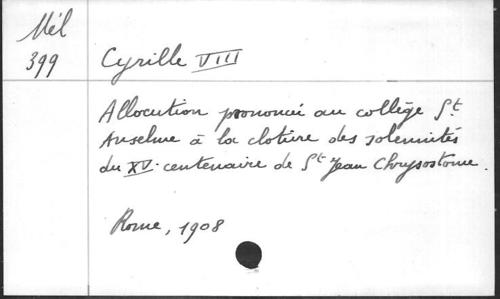 Mél
399
Cyrille VIII
Allocution prononcée au collège St.
Anselme à la clotûre des solemnités
du XV. centenaire de St Jean Chrysostome.
Rome, 1908